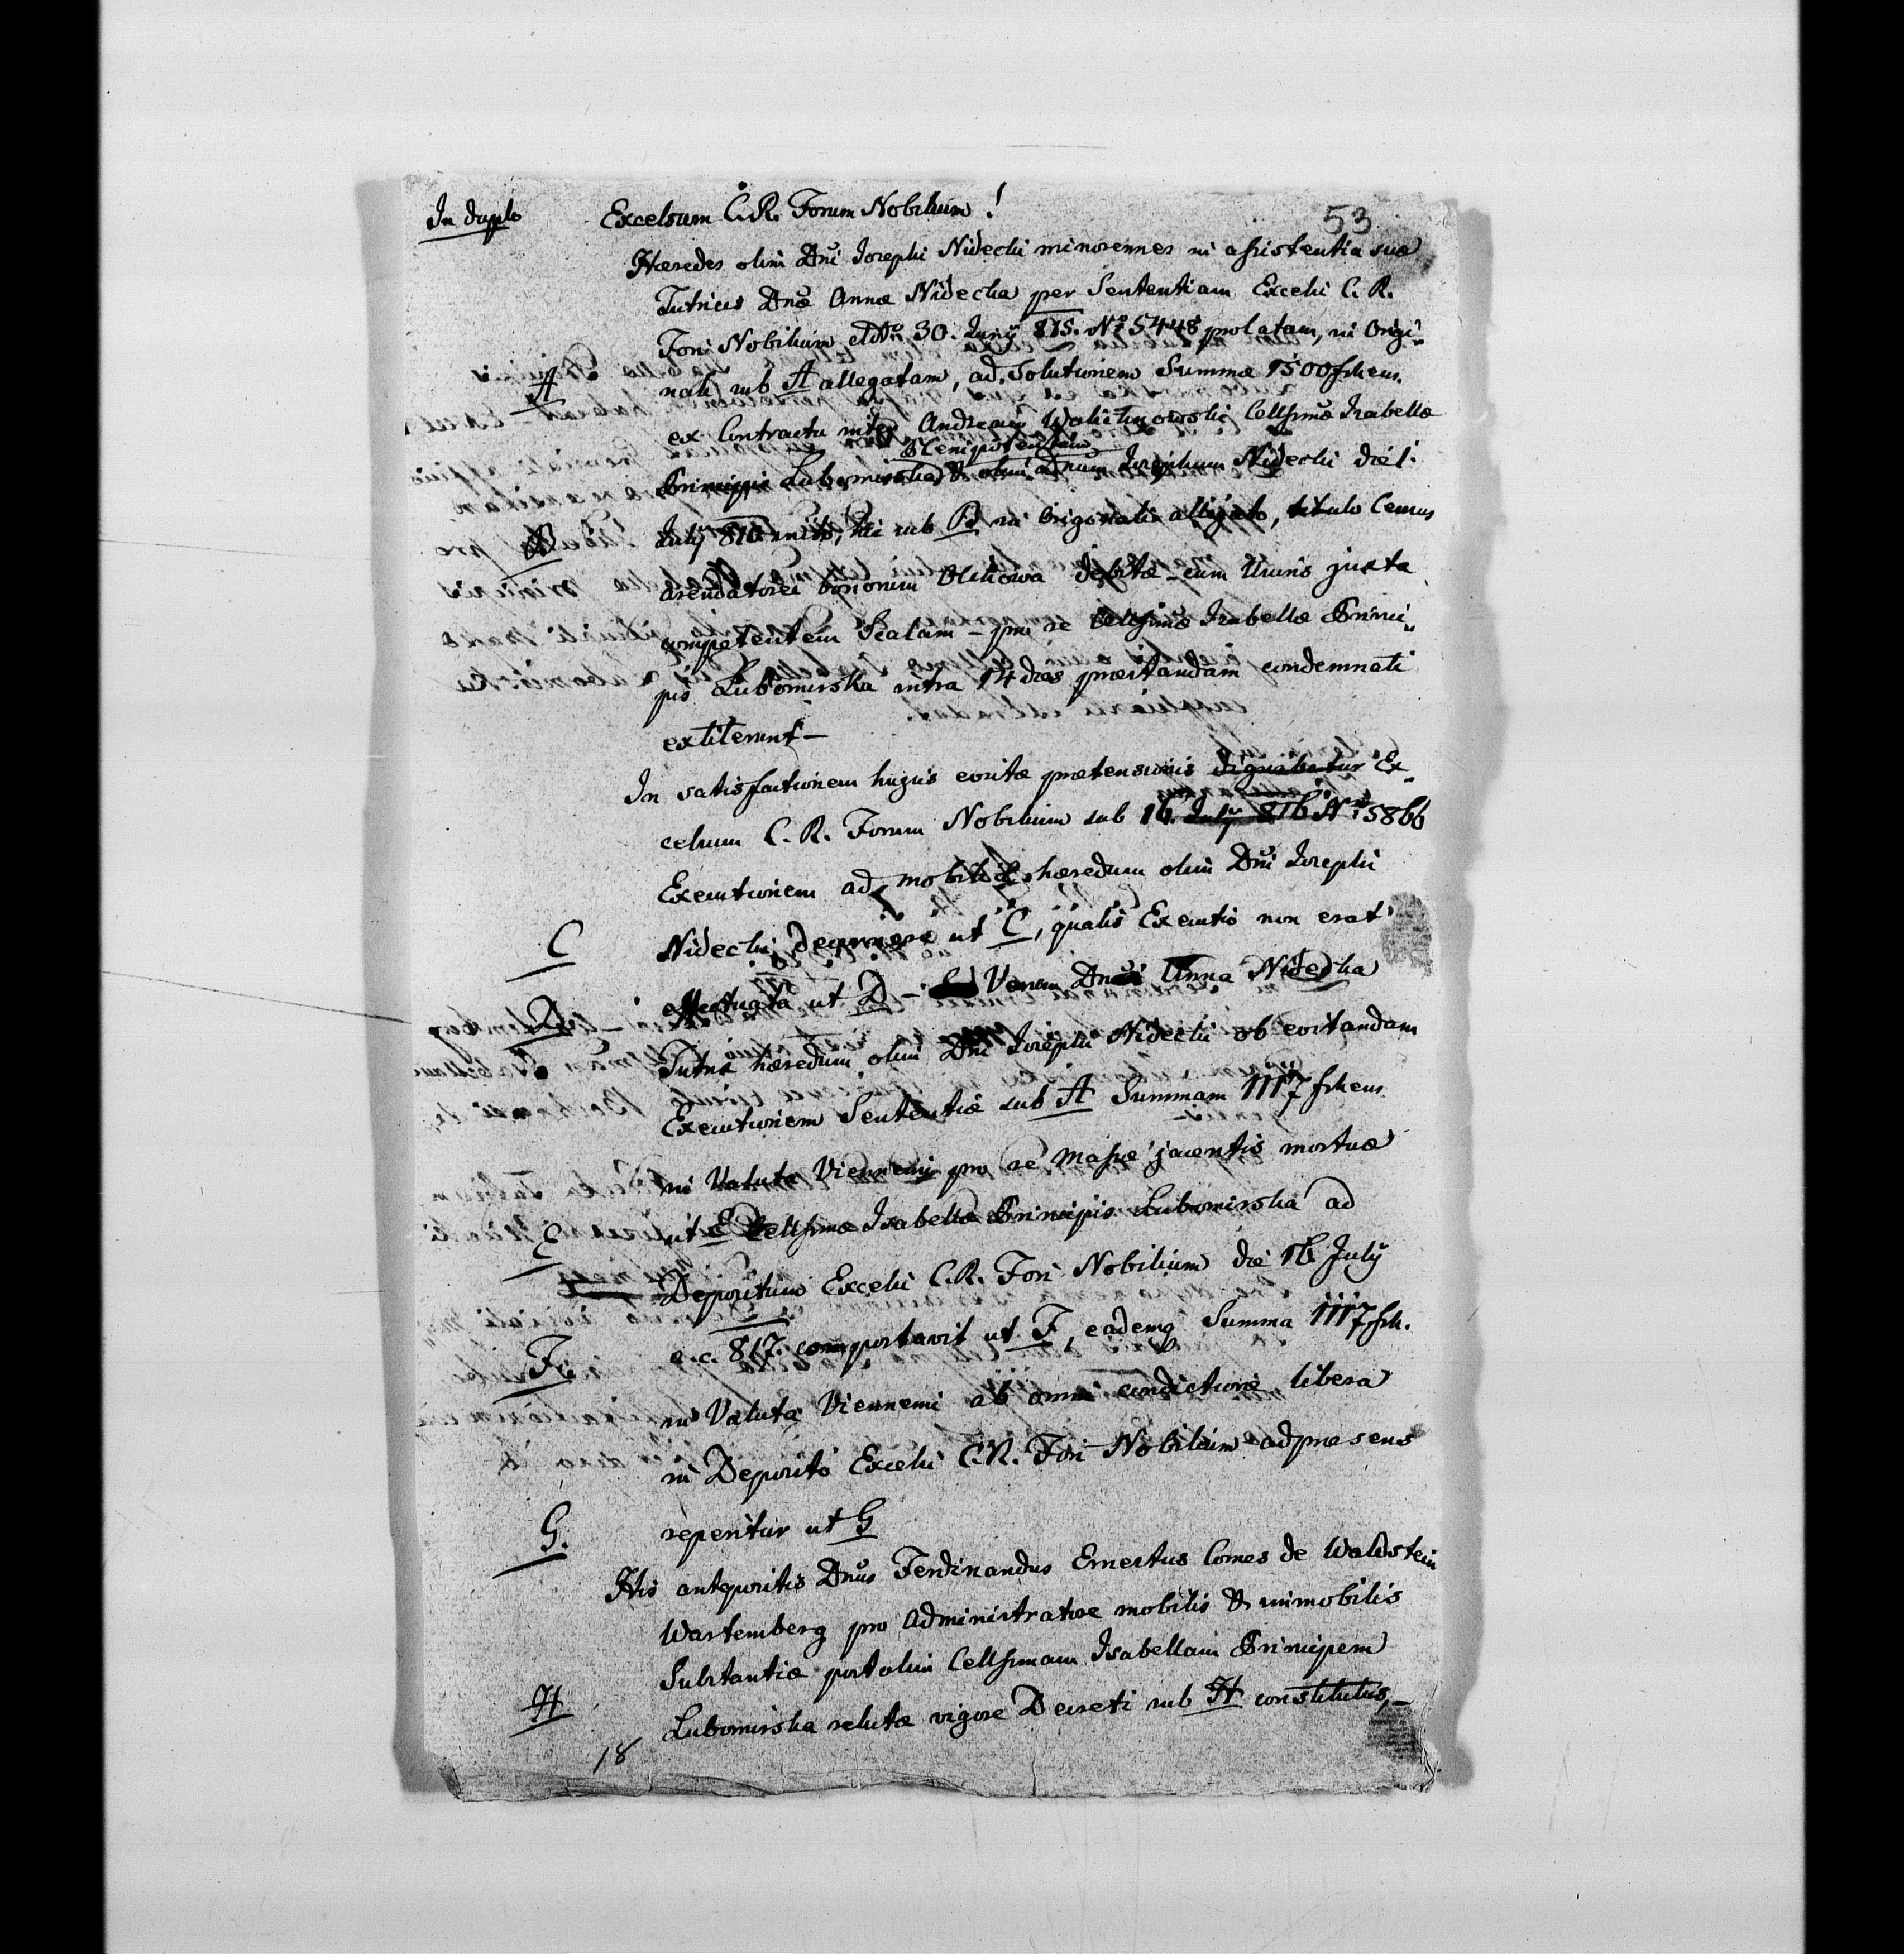 In duplo
Excelsum C. R. Forum Nobilium!
53
Hæredes olim Dni Josephi Nidecki minorennes in assistentia suæ
Tutricis Dnæ Annæ Nidecka per Sententiam Excelsi C. R.
Fori Nobilium ddto 30. Juny 815. No 5448 prolatam, in Origi-
A
nali sub A allegatam, ad Solutionem Summæ 1500 frhens.
ex Contractu inter Andream Walichnowski Cellssimæ Isabellæ
Plenipotentem
Principis Lubomirska & olim Dnum Josephum Nidecki die 1.
B
July 810 inito, hic sub B in Originali allegato, titulo Census
arendatorei bonorum debitæ cum Usuris juxta
competentem Scalam – pro re Cellssimæ Isabellæ Princi-
pis Lubomirska intra 14 dies præstandam condemnati
extiterunt –
In satisfactionem hujus evictæ prætensionis dignabatur Ex-
celsum C. R. Forum Nobilium sub 16. July 816 No 5866
Executionem ad mobilia hæredum olim Dni Josephi
C
Nidecki decernere ut C, qualis Executio non erat
D
effectuata ut D – Verum Dna Anna Nidecka
Tutrix hæredum olim Dni Josephi Nidecki ob evitandam
Executionem Sententiæ sub A Summam 1117 frhens
in Valuta Viennensi pro re Massæ jacentis mortuæ
E
ut E Cellssimæ Isabellæ Principis Lubomirska ad
Depositum Excelsi C. R. Fori Nobilium die 16 July
F.
a. c. 817. comportavit ut F, eademq Summa 1117 frh.
in Valuta Viennensi ab omni condictione libera
in Deposito Excelsi C. R. Fori Nobilium ad præsens
G.
reperitur ut G
His antepositis Dnus Ferdinandus Ernestus Comes de Waldstein
Wartemberg pro Administratore mobilis & immobilis
Substantiæ post olim Cellssimam Isabellam Principem
H
Lubomirska relictæ vigore Decreti sub H constitutus, –
18